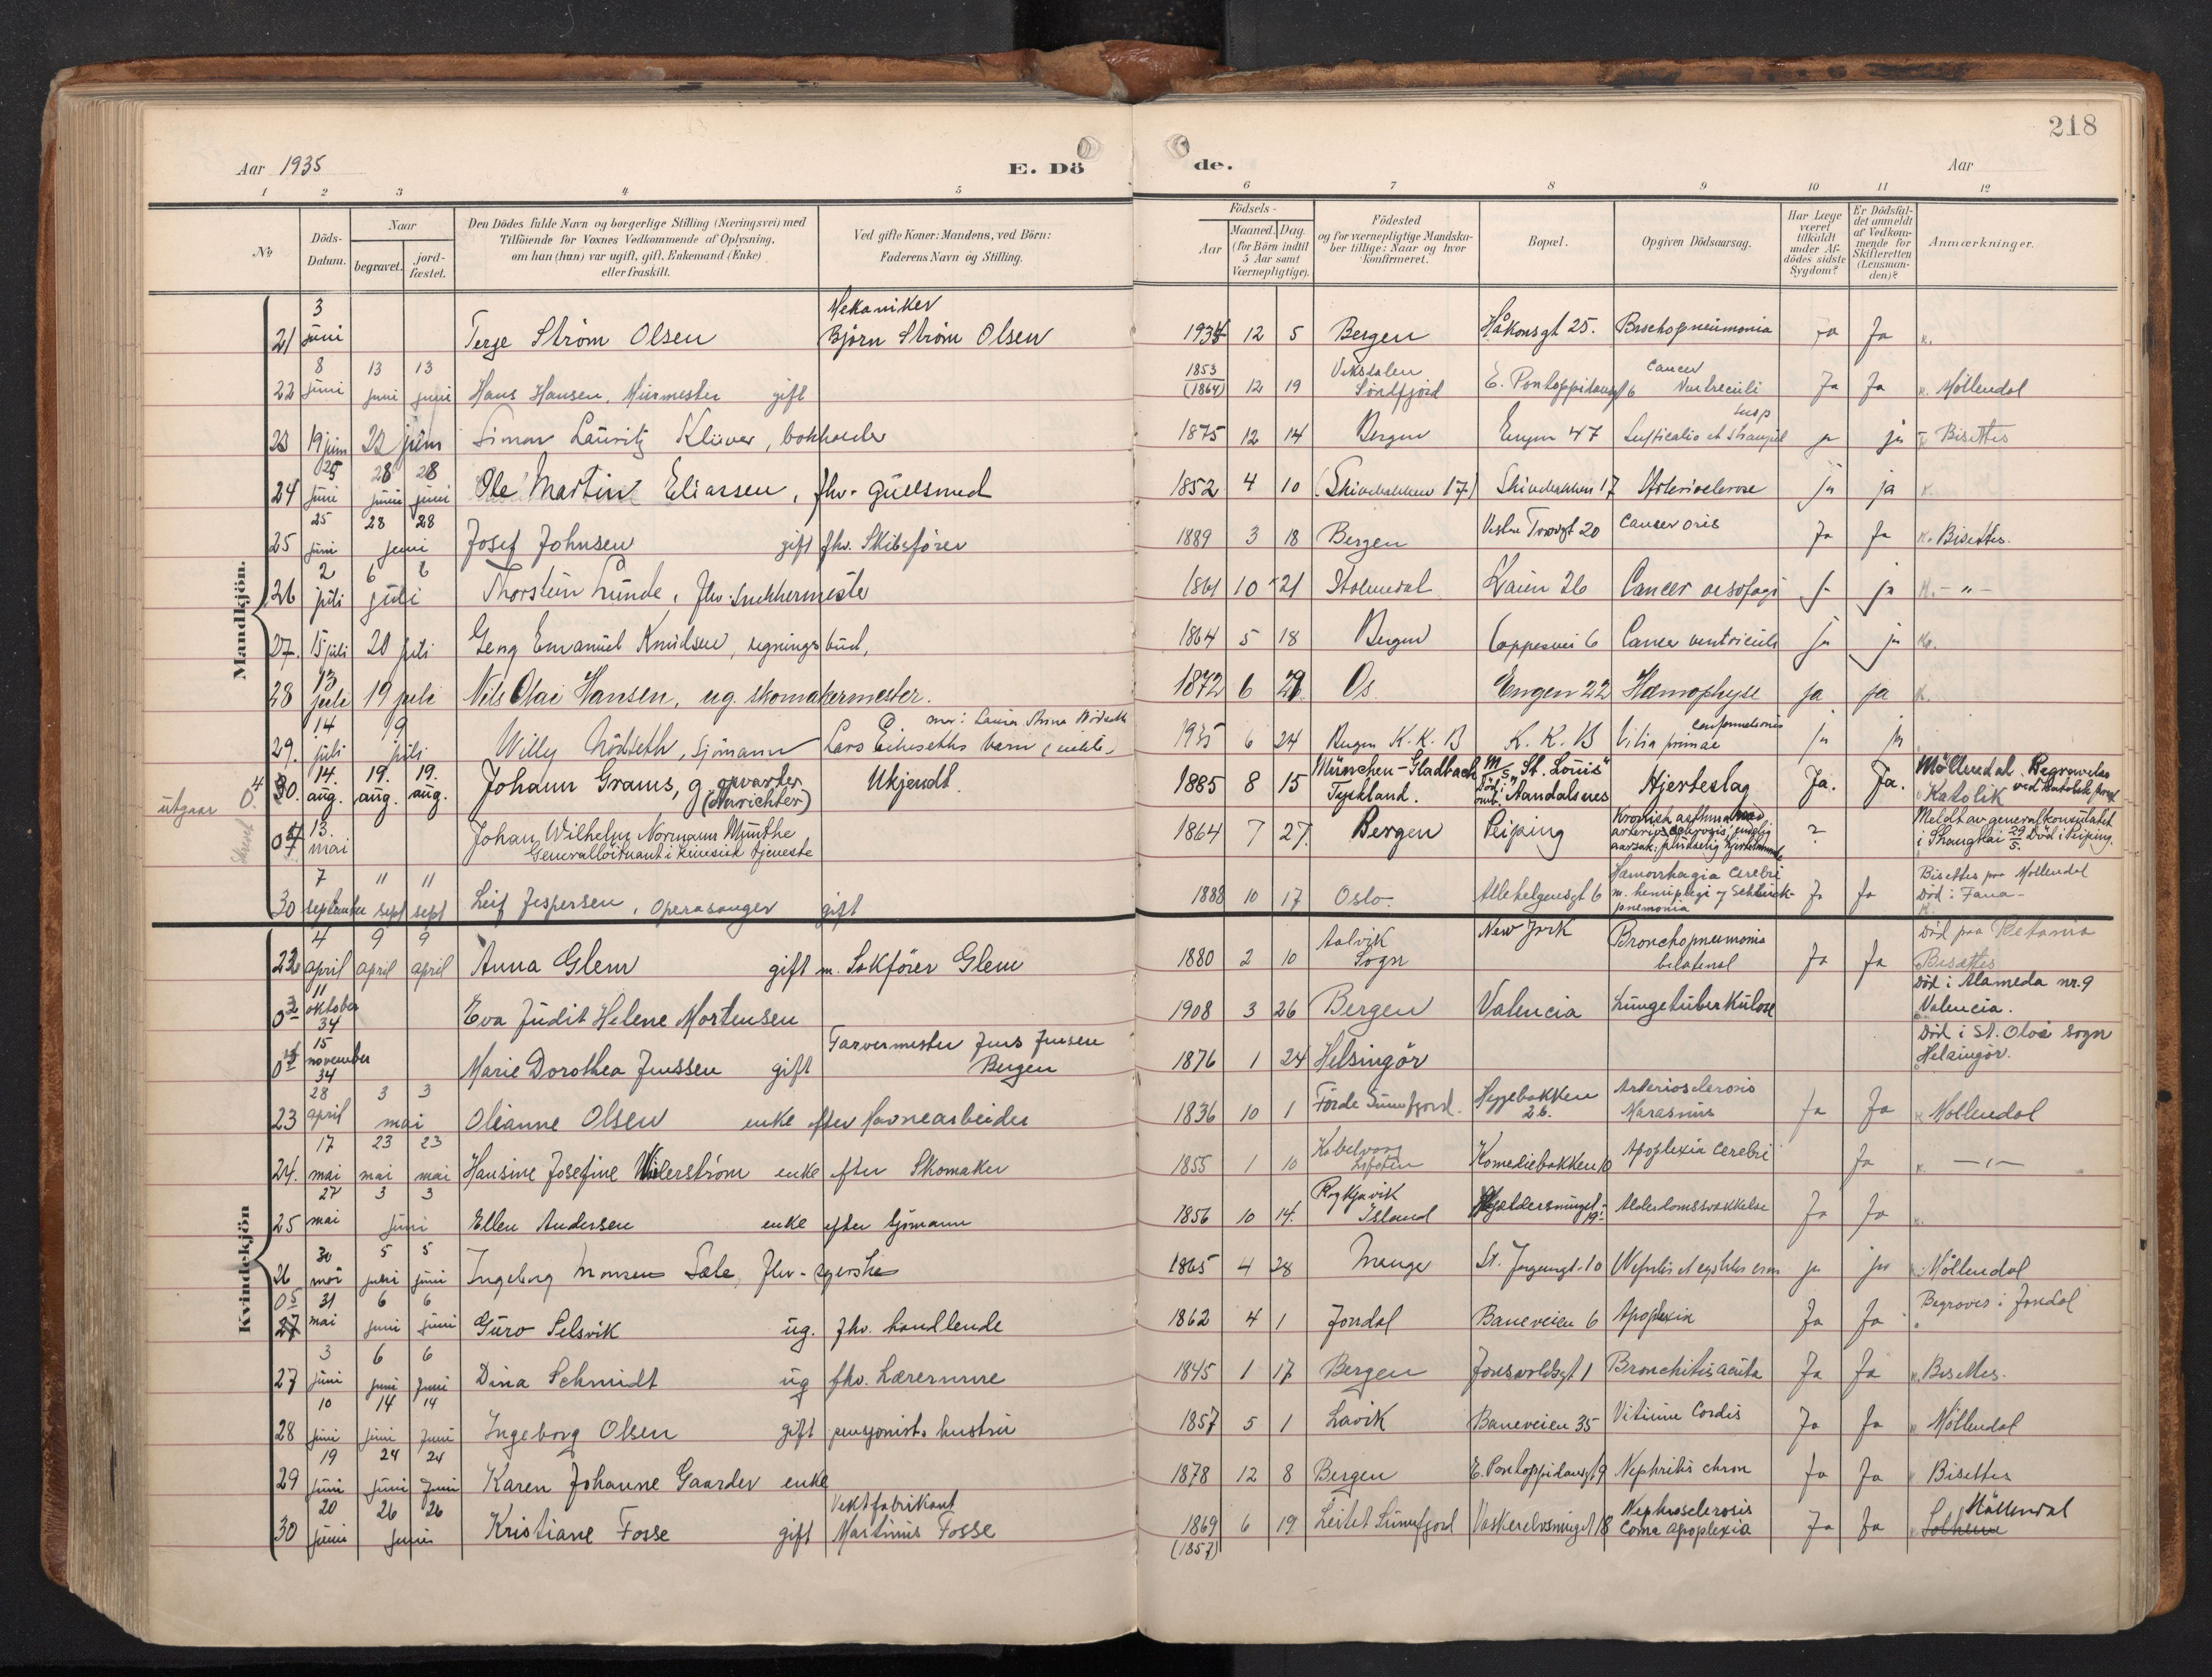 218
Aar 1935 E. Dö de. Aar
1 2 3 4 5 6 7 8 9 10 11 12
No
Döds-Datum.
Naar
begravet.
jord-fæstet.
Den Dödes fulde Navn og borgerlige Stilling (Næringsvei) med
Tilföiende for Voxnes Vedkommende af Oplysning,
om han (hun) var ugift, gift, Enkemand (Enke)
eller fraskilt.
Ved gifte Koner: Mandens, ved Börn:
Faderens Navn og Stilling.
Födsels-
Aar
Maaned. Dag.
(for Börn indtil
5 Aar samt
Værnepligtige).
Födested
og for værnepligtige Mandska-
ber tillige: Naar og hvor
konfirmeret.
Bopæl.
Opgiven Dödsaarsag.
Har Læge
været
tilkaldt
under Af-
dödes sidste
Sygdom?
Er Dödsfal-
det anmeldt
af Vedkom-
mende for
Skifteretten
(Lensman-
den)?
Anmærkninger.
Mandkjön.
21 3 juni Terge Ström Olsen Mekaniker Bjørn Ström Olsen 1934 12 5 Bergen Håkonsgt 25. Ja Ja k.
22 8 juni 13 juni 13 juni Hans Hansen, Murmester gift 1853 (1864) 12 19 E. Pontoppidansgt 6 Cancer Ventriculi Ja Ja k. Möllendal
23 19 juni 22 juni Simon Lauritz Klüver, bokholder 1875 12 14 Bergen Engen 47 ja ja Bisettes
24 25 juni 28 juni 28 juni Ole Martin Eliassen, fhv. gullsmed 1852 4 10 (Skivebakken 17) Skivebakken 17 ja ja k.
25 25 juni 28 28 juni Josef Johnsen gift fhv. Skibsförer 1889 3 18 Bergen Vestre Torvgt 20 Cancer oris Ja Ja k. Bisettes.
26 2 juli 6 6 juli Thorstein Lunde, fhv. 1861 10 21 26 Cancer oesofagi ja ja k. - " -
27. 15 juli 20 juli Emanuel Knudsen, regningsbud, 1864 5 18 Bergen 6 Cancer ventriculi ja ja k.
28 13 juli 19 juli Nils Olai Hansen, ug. skomakermester. 1872 6 29 Os Engen 22 ja ja k.
29. 14 juli 19 juli Willy Nödseth, Sjömann Lars barn mor: Laura Anna Nödseth 1935 6 24 Bergen K. K. B K. K. B Vitia primae ja ja
utgaar 0.4 30. 14. aug. 19. aug. 19. aug. Johann Grams, g. opvarter (Anrichter) Ukjendt. 1885 8 15 München-Gladbach Tyskland. M/S "St. Louis" Aandalsnes Hjerteslag Ja. Ja. Möllendal. Begravelse ved Katolsk prest Katolik
13. mai Johan Wilhelm Normann Munthe, Generallöitnant i kinesisk tjeneste 1864 7 27. Bergen Peiping Kronisk asthma med ? Meldt av generalkonsulatet i Shanghai 29/5. Död i Peiping.
30 7 september 11 sept 11 sept Leif Jespersen, Operasanger gift 1888 10 17 Oslo. Allehelgensgt 6 Hæmorrhagia Cerebri m. hemiplegi pnemonia Ja Ja Bisettes paa Möllendal Död i Fana -
Kvindekjön
22 4 april 9 april 9 april Anna Glem gift m. Sakförer Glem 1880 2 10 Aalvik Sogn New York Bronchopneumonia bilateral Ja Ja Död paa Betania Bisettes
11 oktober 34 Eva Judit Helene Mortensen 1908 3 26 Bergen Valencia Lungetuberkulose Död i Alameda nr. 9 Valencia.
15 november 34 Marie Dorothea Jenssen gift Garvermester Jens Jensen Bergen 1876 1 24 Helsingör Död i St. Olai Sogn Helsingör.
23 28 april 3 3 mai Olianne Olsen enke efter Havnearbeider 1836 10 1 Förde Sunnfjord. Heggebakken 26. Arteriosclerosis Marasmus Ja Ja k. Möllendal
24. 17 mai 23 mai 23 mai Hansine Josefine enke efter Skomaker 1855 1 10 Kabelvaag Lofoten Komediebakken 10 Apoplexia Cerebri Ja k. - " -
25 27 mai 3 3 juni Ellen Andersen enke efter Sjömann 1856 10 14. Reykjavik Island Alderdomssvakkelse Ja Ja
26 30 mai 5 juni 5 juni Ingeborg Monsen Sæle, fhv. syerske 1865 4 28 Mange St. Jørgensgt. 10 ja ja Möllendal
05 27 31 mai 6 juni 6 juni Guro Selsvik ug. fhv. handlende 1862 4 1 Jondal Baneveien 6 Apoplexia Ja Ja Begraves i Jondal
27 3 juni 6 juni 6 juni Dina Schmidt ug fhv. Lærerinne 1845 1 17 Bergen Jonsvoldsgt 1 Bronchitis acuta Ja Ja k. Bisettes.
28 10 juni 14 juni 14 juni Ingeborg Olsen gift pensjonists hustru 1857 5 1 Lavik Baneveien 35 Vitium Cordis Ja Ja k. Möllendal
29 19 juni 24 juni 24 juni Karen Johanne Gaarder enke 1878 12 8 Bergen E. Pontoppidansgt 9 Nephritis chron Ja Ja Bisettes
30 20 juni 26 26 juni Kristiane Fosse gift Vektfabrikant Martinus Fosse 1869 (1857) 6 19 Leitet Sunnfjord Vaskerelvsmuget 18 Nephrosclerosis Coma Apoplexia Ja Ja Möllendal Solheim